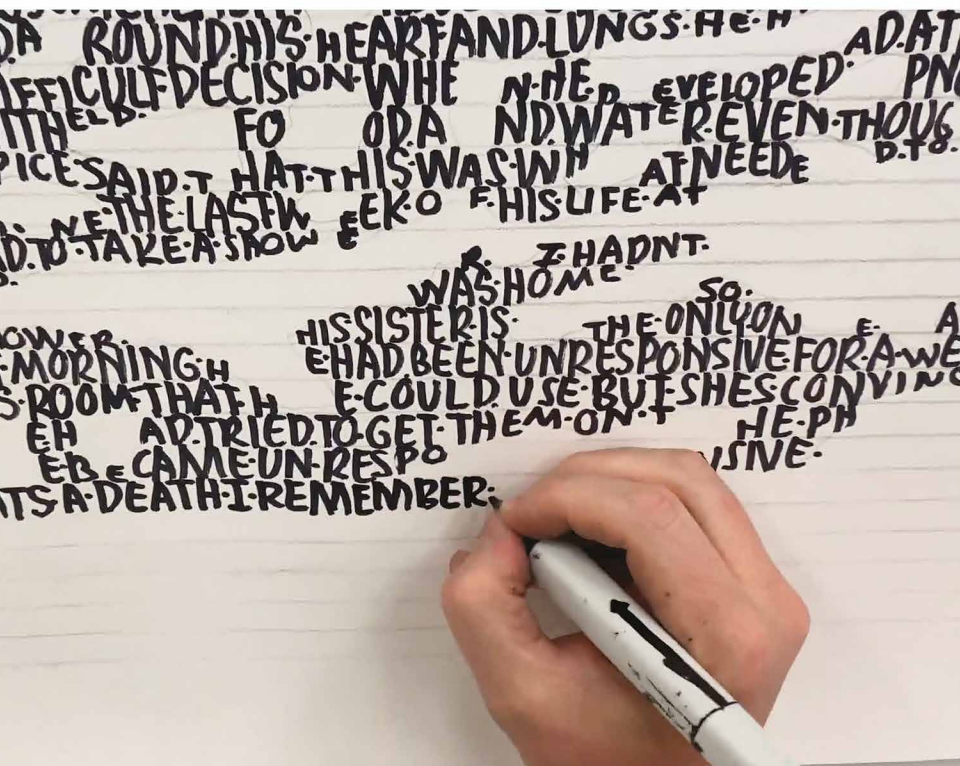 ROUND·HIS·HEART·AND·LUNGS·HE·H AD.AT
IFFICULT·DECISION·WHE N·HE·D EVELOPED· PN
ITHELD· FO OD.A ND.WATER.EVEN·THOUG
PICE·SAID·T HAT·THIS·WAS·WH AT·NEEDE D.TO.
NE·THE·LAST·W EEK·O F·HIS·LIFE·AT
D.TO·TAKE·A·SHOW E
R. I·HADNT·
WAS·HOME· SO·
OWER. HIS·SISTER·IS· THE·ONLY·ON E· A
MORNING·H E·HAD·BEEN·UNRESPONSIVE·FOR·A·WE
S·ROOM·THAT·H E·COULD·USE·BUT·SHES·CONVINC
EH AD.TRIED.TO·GET·THEM·ON·T HE·PH
E·BECAME·UN·RESPO NSIVE·
ATS·A·DEATH·I·REMEMBER·